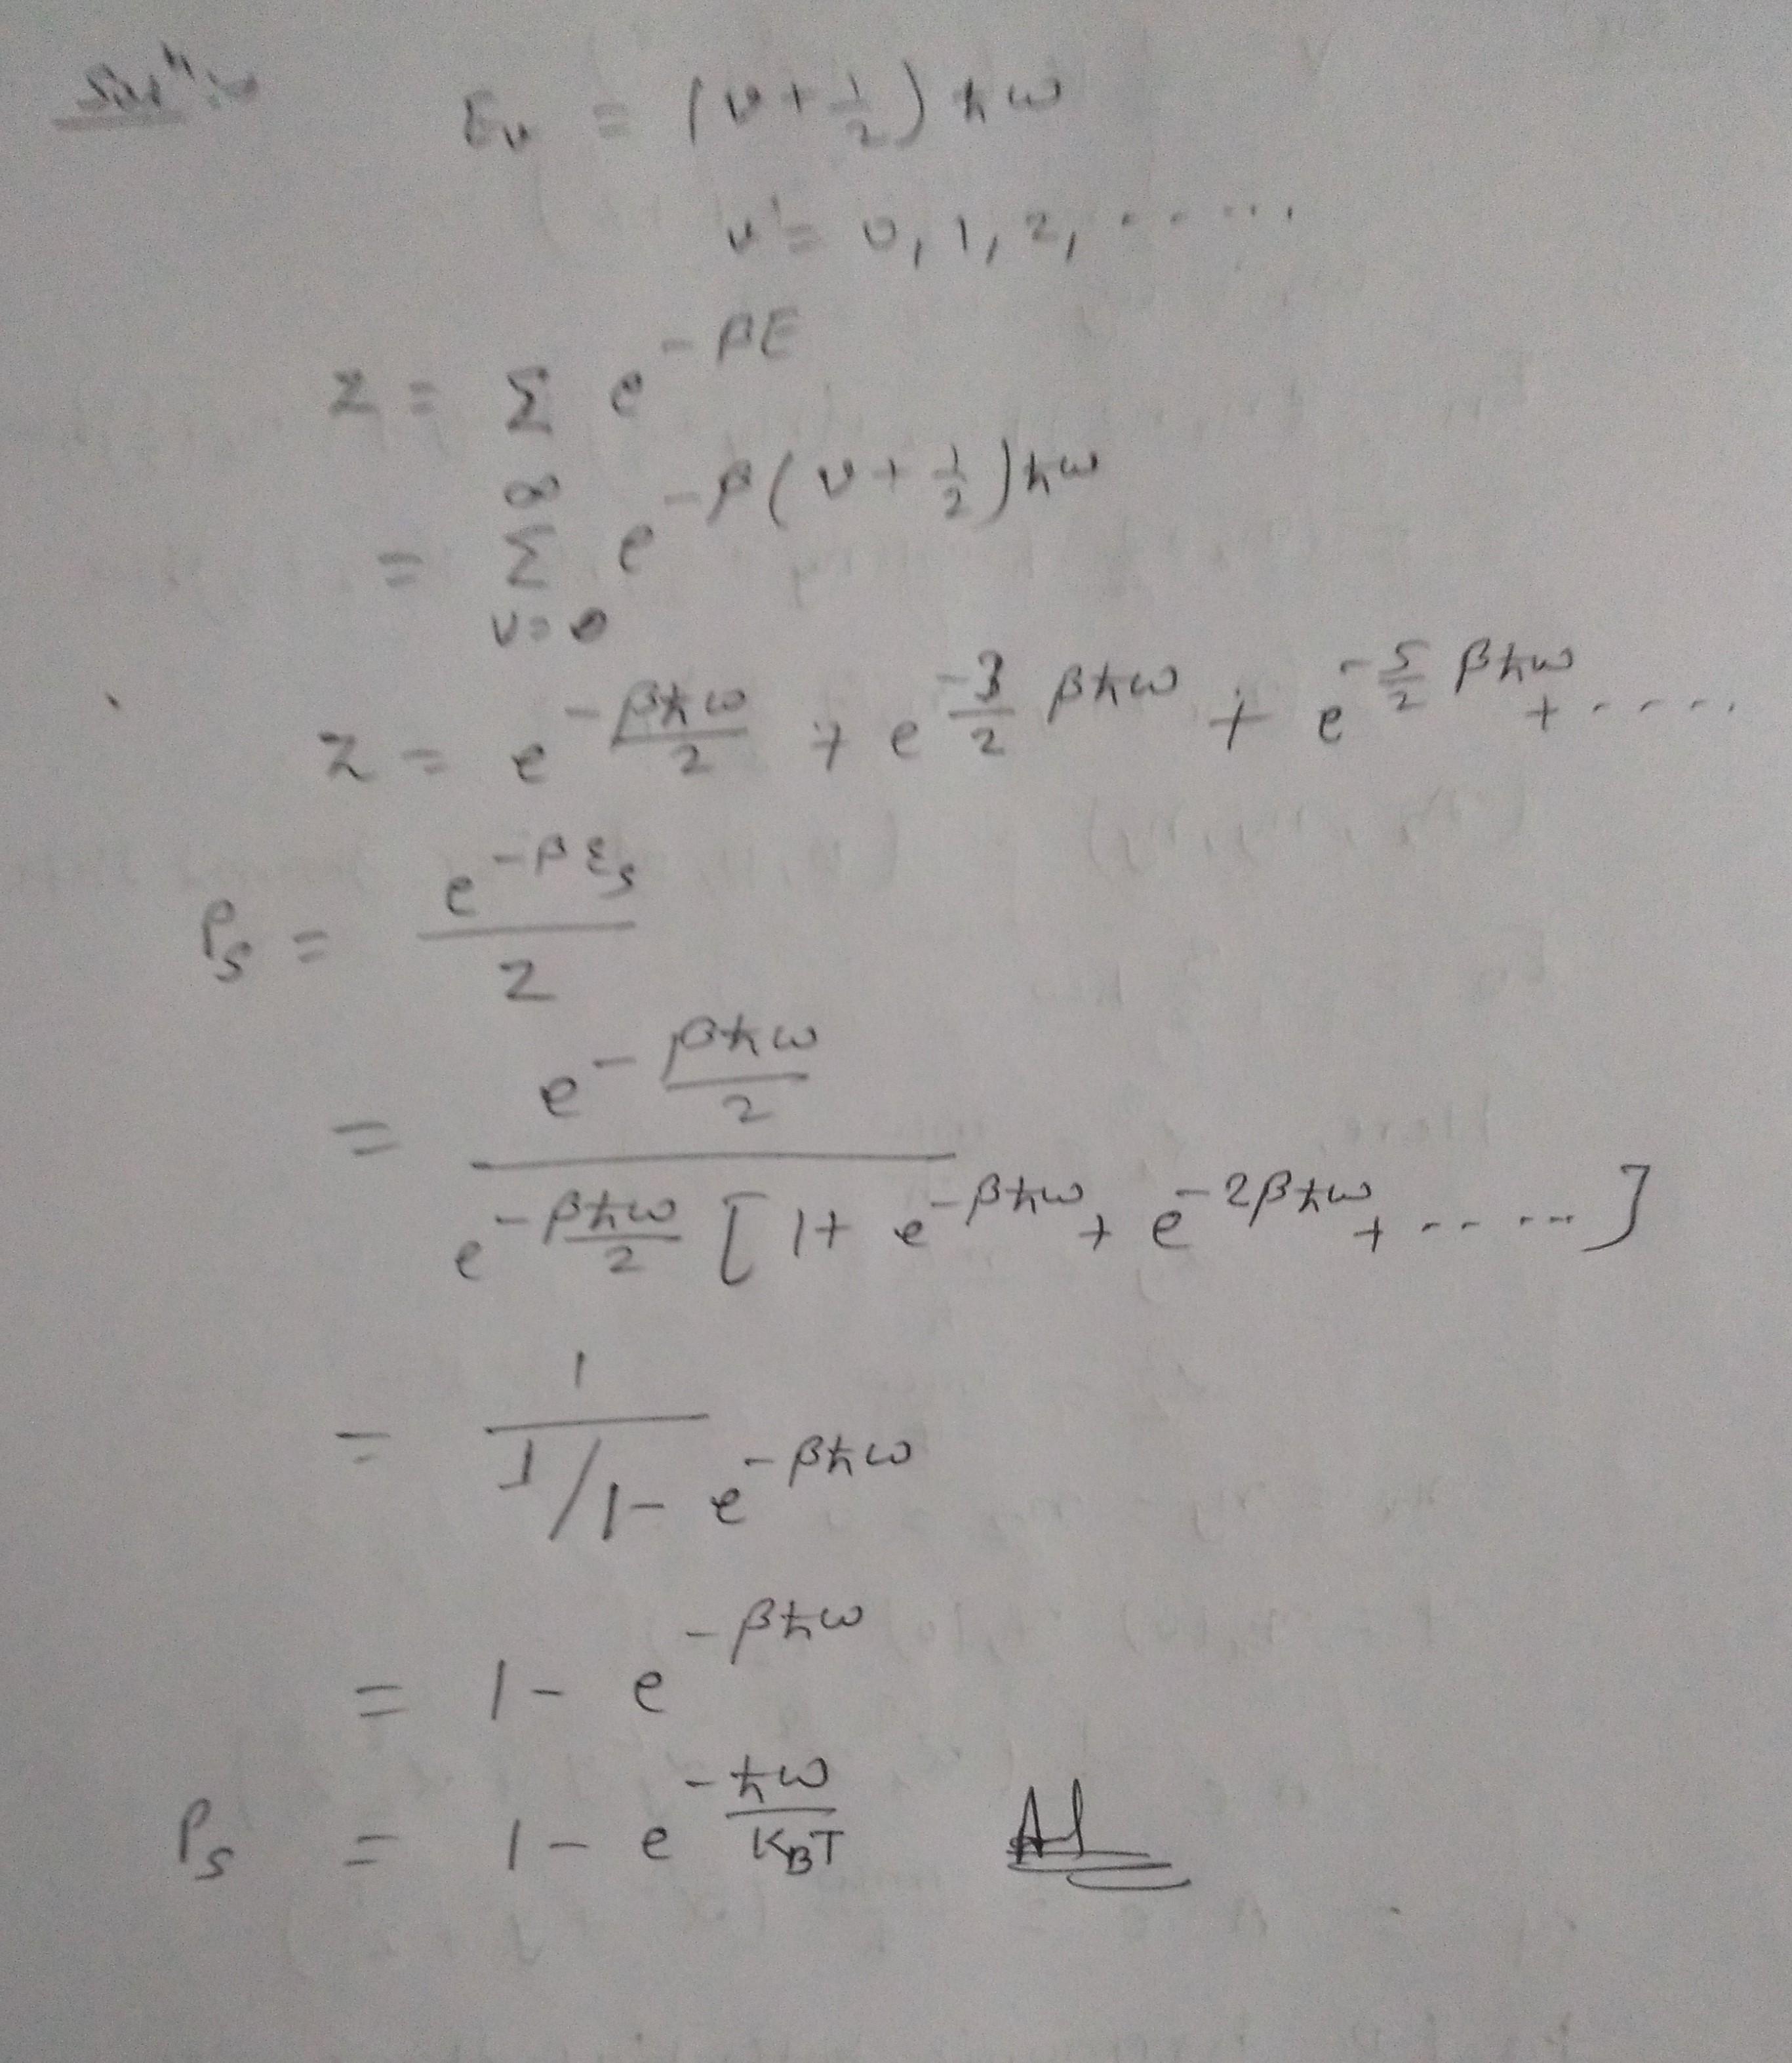 Solⁿ:-
Eᵥ = (v + 1/2) ħω
v = 0, 1, 2, ......
Z = Σ e^{-βE}
= Σ_{v=0}^{∞} e^{-β(v + 1/2)ħω}
Z = e^{-βħω/2} + e^{-3/2 βħω} + e^{-5/2 βħω} + .....
P_s = e^{-βε_s} / Z
= e^{-βħω/2} / e^{-βħω/2} [1 + e^{-βħω} + e^{-2βħω} + .....]
= 1 / 1/1 - e^{-βħω}
= 1 - e^{-βħω}
P_s = 1 - e^{-ħω/K_BT}